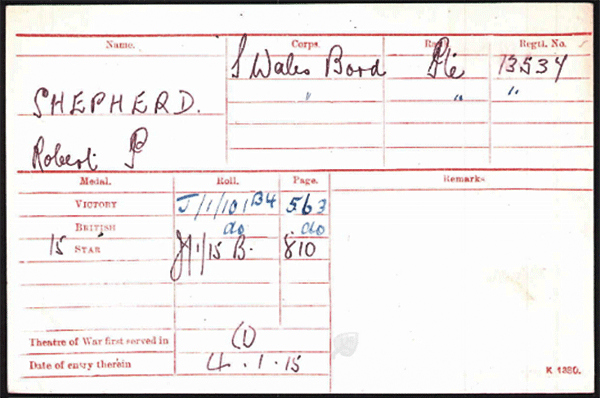 Name. Corps. Rank. Regtl. No.
S Wales Bord Pte 13534
" " "
SHEPHERD.
Robert P
Medal. Roll. Page. Remarks
VICTORY J/1/101B4 563
BRITISH do do
15 STAR J/1/15 B. 810
Theatre of War first served in (1)
Date of entry therein 4.1.15
K 1380.